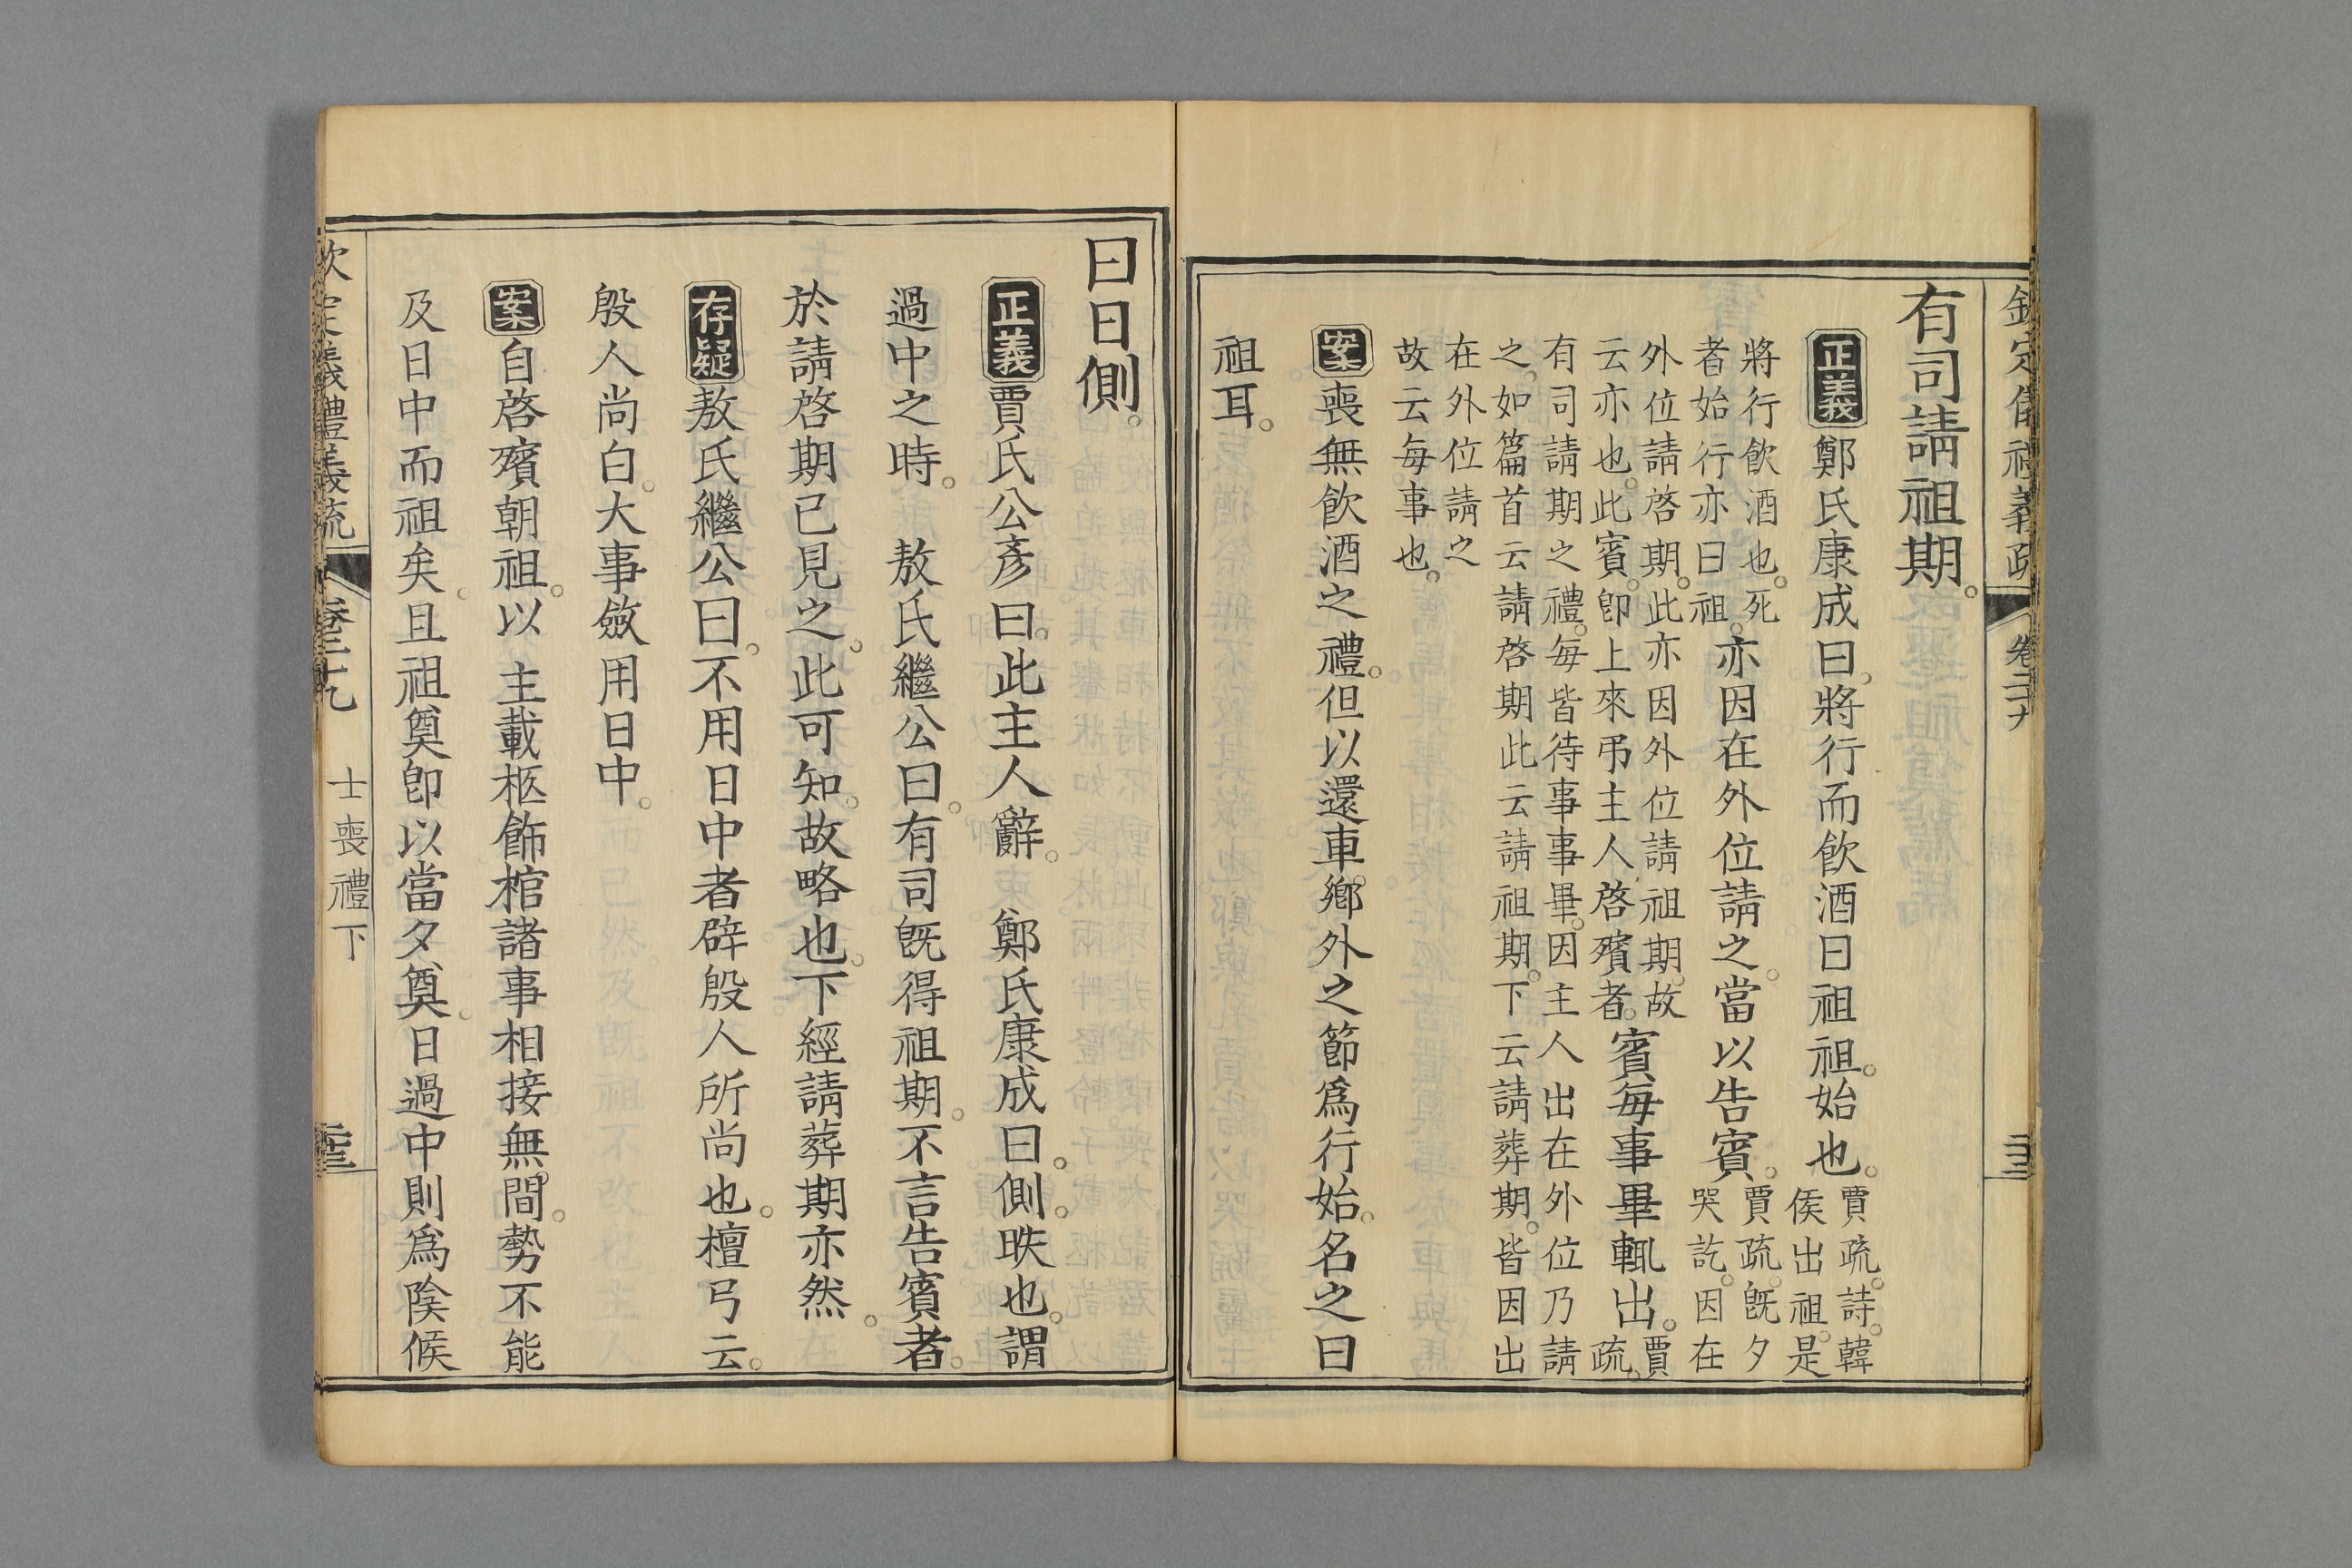 欽定儀禮義疏 卷二十九
有司請祖期。
正義 鄭氏康成曰。將行而飲酒曰祖祖。始也。
賈疏。詩。韓
侯出祖。是
將行飲酒也。死
者始行亦曰祖。
亦因在外位請之。當以告賓。
賈疏。旣夕
哭訖。因在
外位請啓期。此亦因外位請祖期。故
云亦也。此賓。卽上來弔主人啓殯者。
賓每事畢輒出。
賈
疏。
有司請期之禮。每皆待事事畢。因主人出在外位乃請
之。如篇首云請啓期此云請祖期。下云請葬期。皆因出
在外位請之
故云每事也。
案 喪無飲酒之禮。但以還車鄉外之節爲行始。名之曰
祖耳。
曰日側。
正義 賈氏公彥曰。此主人辭。 鄭氏康成曰。側。昳也。謂
過中之時。 敖氏繼公曰。有司旣得祖期。不言告賓者。
於請啓期已見之。此可知。故略也。下經請葬期亦然。
存疑 敖氏繼公曰。不用日中者辟殷人所尚也。檀弓云。
殷人尚白。大事斂用日中。
案 自啓殯朝祖。以 主載柩飾棺諸事相接無間。勢不能
及日中而祖矣。且祖奠卽以當夕奠。日過中則爲陰候
欽定儀禮義疏 卷二十九 士喪禮下